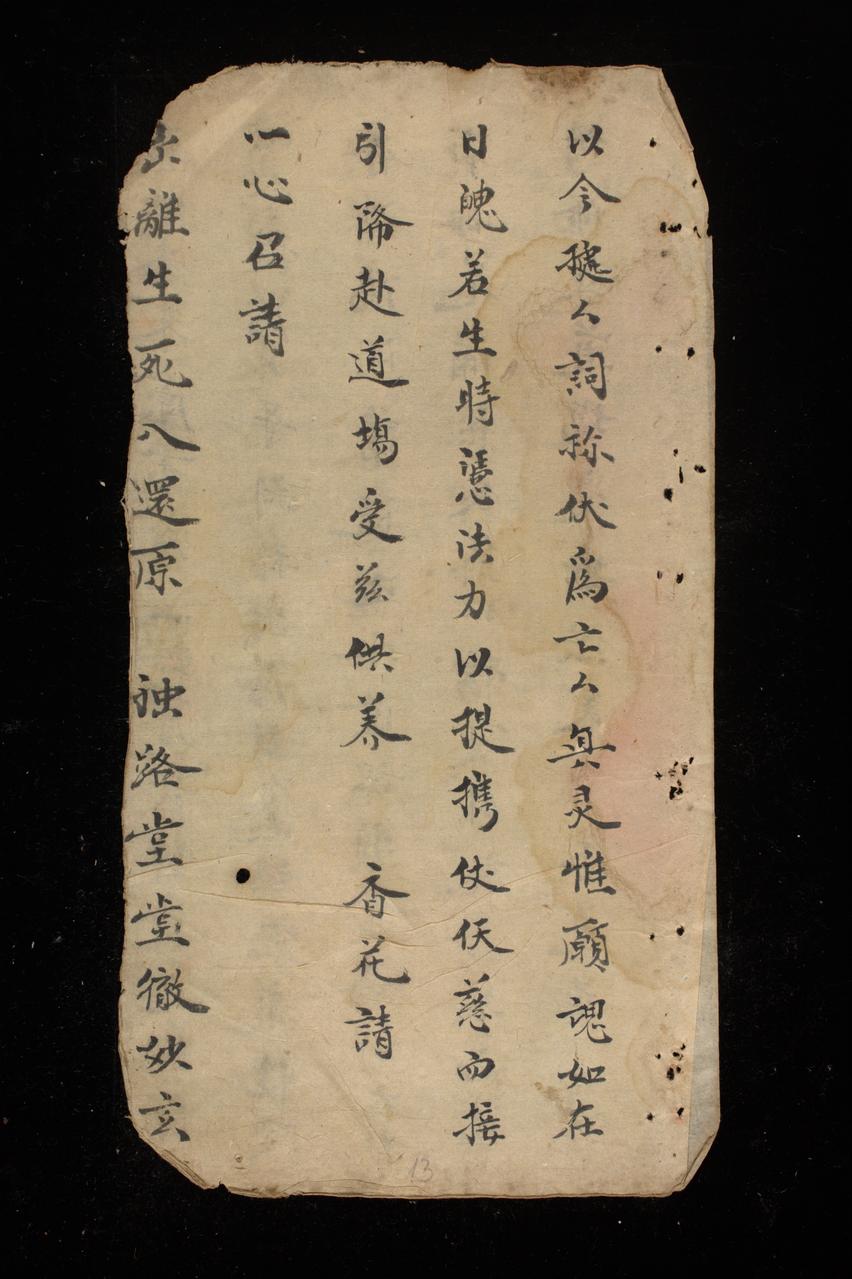 以今㨿亽詞称伏爲亡亽真灵惟願魂如在
日魄若生時憑法力以提攜仗佛慈而接
引降赴道塲受兹供養 香花請
一心召請
出離生死入還原 独路堂堂徹妙玄
13